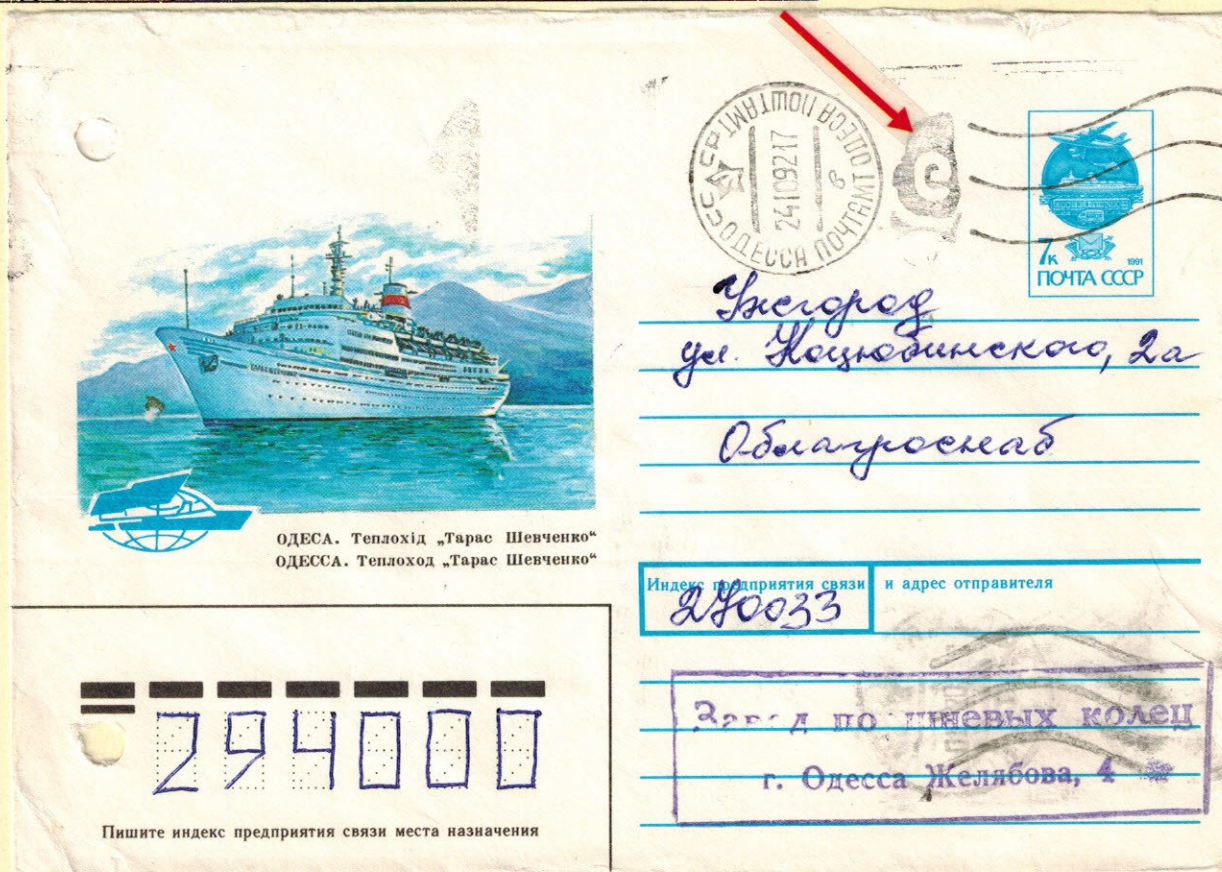 СССР ПОШТАМТ ОДЕСА ПОШТАМТ
24 10 92 17
б
ОДЕССА ПОЧТАМТ
7 к 1991
ПОЧТА СССР
Ужгород
ул. Коцюбинского, 2а
Облагроснаб
ОДЕСА. Теплохід „Тарас Шевченко“
ОДЕССА. Теплоход „Тарас Шевченко“
Индекс предприятия связи и адрес отправителя
270033
294000
Завод поршневых колец
г. Одесса Желябова, 4
Пишите индекс предприятия связи места назначения